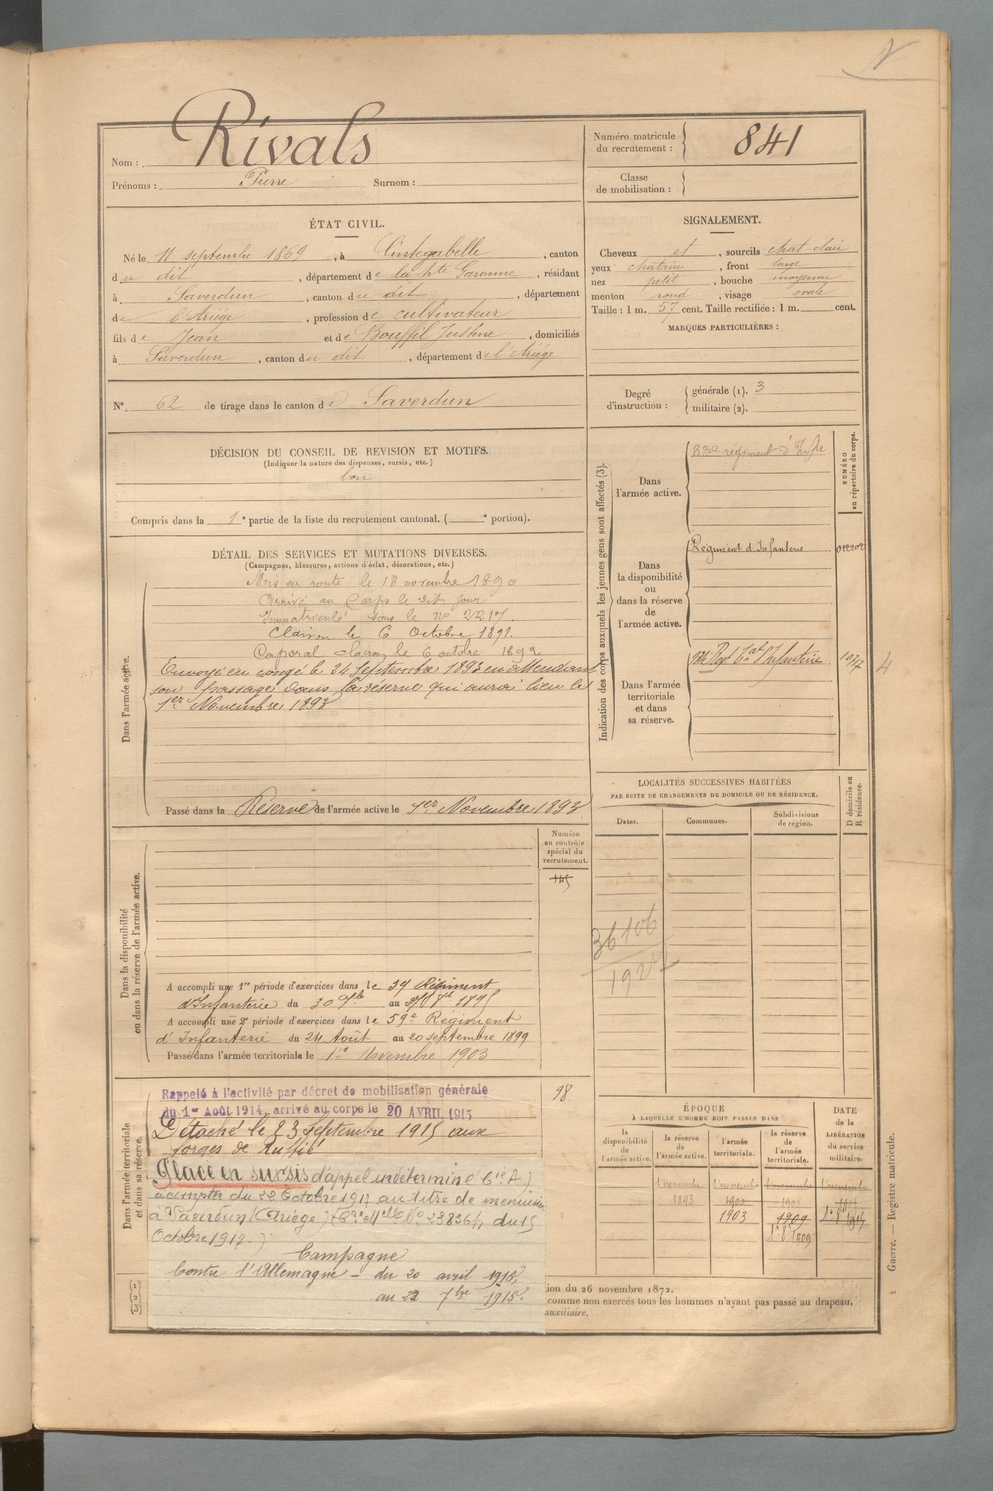 Nom : Rivals
Prénoms : Pierre Surnom :
Numéro matricule du recrutement : 841
Classe de mobilisation :
ÉTAT CIVIL.
Né le 11 septembre 1869, à Cintegabelle, canton
du dit, département de la hte Garonne, résidant
à Saverdun, canton du dit, département
de l'Ariège, profession de cultivateur
fils de Jean et de Bouffil Justine, domiciliés
à Saverdun, canton du dit, département de l'Ariège
SIGNALEMENT.
Cheveux et, sourcils chat. clair
yeux chatain, front large
nez petit, bouche moyenne
menton rond, visage ovale
Taille : 1 m. 57 cent. Taille rectifiée : 1 m. cent.
MARQUES PARTICULIÈRES :
N° 62 de tirage dans le canton de Saverdun
Degré d'instruction : générale (1). 3
militaire (2).
DÉCISION DU CONSEIL DE REVISION ET MOTIFS.
(Indiquer la nature des dispenses, sursis, etc.)
bon
Compris dans la 1e partie de la liste du recrutement cantonal. ( e portion).
DÉTAIL DES SERVICES ET MUTATIONS DIVERSES.
(Campagnes, blessures, actions d'éclat, décorations, etc.)
Dans l'armée active.
Mis en route le 13 novembre 1890
Arrivé au Corps le dit jour
Immatriculé sous le n° 2217
Clairon le 6 Octobre 1891.
Caporal clairon le 6 octobre 1892
Envoyé en congé le 24 Septembre 1893 en attendant
son passage dans la réserve qui aura lieu le
1er Novembre 1893
Passé dans la Réserve de l'armée active le 1er Novembre 1893
Indication des corps auxquels les jeunes gens sont affectés (3).
NUMÉRO au répertoire du corps.
Dans l'armée active. 83e régiment d'Infie
Dans la disponibilité ou dans la réserve de l'armée active. Régiment d'Infanterie 012202
Dans l'armée territoriale et dans sa réserve. Rgt tal d'Infanterie
4
LOCALITÉS SUCCESSIVES HABITÉES
PAR SUITE DE CHANGEMENTS DE DOMICILE OU DE RÉSIDENCE.
Dates. Communes. Subdivisions de région. D domicile ou R résidence.
36106
Numéro au contrôle spécial du recrutement.
Dans la disponibilité ou dans la réserve de l'armée active.
A accompli une 1re période d'exercices dans le 59 Régiment
d'Infanterie du 30 7bre au
A accompli une 2e période d'exercices dans le 59e Régiment
d'Infanterie du 24 Août au 20 septembre 1899
Passé dans l'armée territoriale le 1er Novembre 1903
98
Dans l'armée territoriale et dans sa réserve.
Rappelé à l'activité par décret de mobilisation générale
du 1er Août 1914, arrivé au corps le 20 AVRIL 1915
Détaché le 23 Septembre 1915 aux
forges de
Placé en sursis d'appel indéterminé
à compter du 22 Octobre 1917 au titre de menuisier
à Saverdun (Ariège) du 15
Octobre 1917.
Campagne
Contre l'Allemagne - du 20 avril 1915
au 22 7bre 1915.
ÉPOQUE
À LAQUELLE L'HOMME DOIT PASSER DANS
la disponibilité de l'armée active.
la réserve de l'armée active.
l'armée territoriale.
la réserve de l'armée territoriale.
DATE de la LIBÉRATION du service militaire.
1 novembre 1 novembre 1 novembre 1 novembre
1893 1900 1909
1903 1909
(1) (2) (3)
ion du 26 novembre 1872.
comme non exercés tous les hommes n'ayant pas passé au drapeau,
auxiliaire.
Guerre. — Registre matricule.